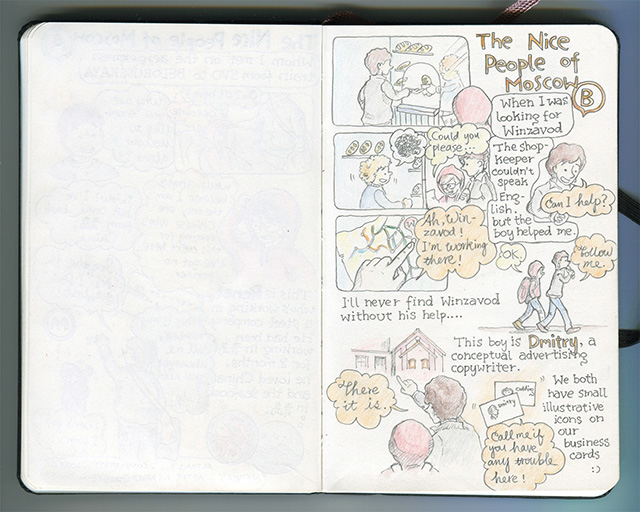 The Nice
People of
Moscow
B
When I was
looking for
Winzavod
Could you
please...
The shop-
keeper
couldn't
speak
Eng-
lish.
but the
boy helped me.
Can I help?
Ah, Win-
zavod!
I'm working
there!
OK.
Follow
me.
I'll never find Winzavod
without his help....
This boy is Dmitry, a
conceptual advertising
copywriter.
There
it is.
Dmitry
Call me if
you have
any trouble
here!
We both
have small
illustrative
icons on
our
business
cards
:)